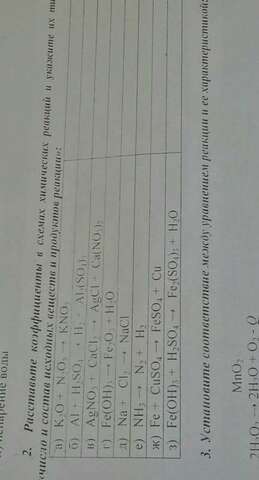 испарение воды
2. Расставьте коэффициенты в схемах химических реакций и укажите их ти
число и состав исходных веществ и продуктов реакции»:
а) K₂O + N₂O₅ → KNO₃
б) Al + H₂SO₄ → H₂ + Al₂(SO₄)₃
в) AgNO₃ + CaCl₂ → AgCl + Ca(NO₃)₂
г) Fe(OH)₃ → Fe₂O₃ + H₂O
д) Na + Cl₂ → NaCl
е) NH₃ → N₂ + H₂
ж) Fe + CuSO₄ → FeSO₄ + Cu
з) Fe(OH)₃ + H₂SO₄ → Fe₂(SO₄)₃ + H₂O
3. Установите соответствие между уравнением реакции и её характеристикой:
MnO₂
2H₂O₂ → 2H₂O + O₂ - Q